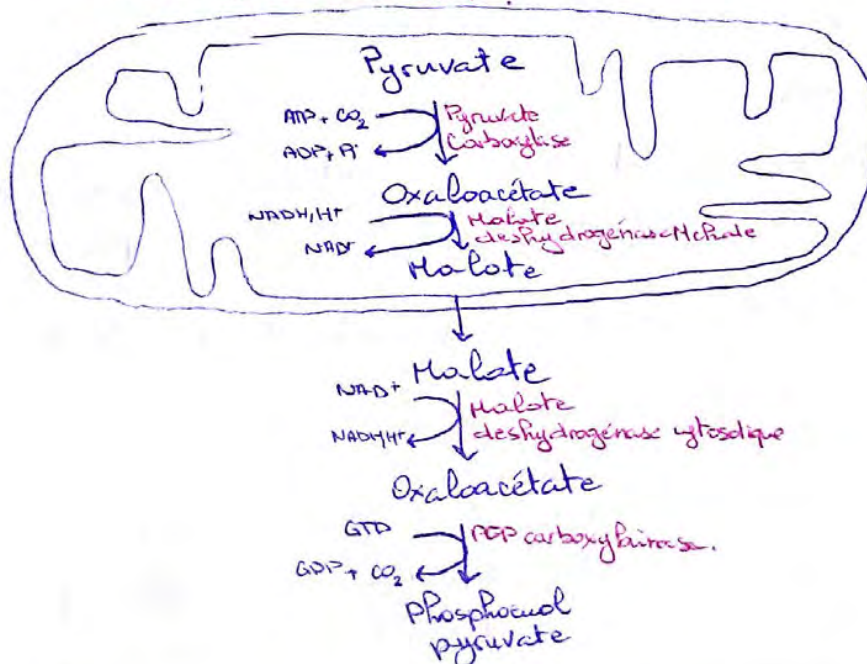 Pyruvate
ATP + CO2
Pyruvate
Carboxylase
ADP + Pi
Oxaloacétate
NADH,H+
Malate
deshydrogénase Mchale
NAD+
Malate
Malate
NAD+
Malate
deshydrogénase cytosolique
NADH,H+
Oxaloacétate
GTP
PEP carboxykinase.
GDP + CO2
Phosphoenol
pyruvate